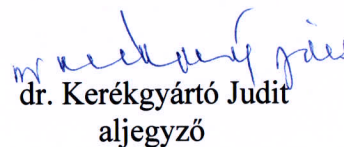 dr. Kerékgyártó Judit
aljegyző